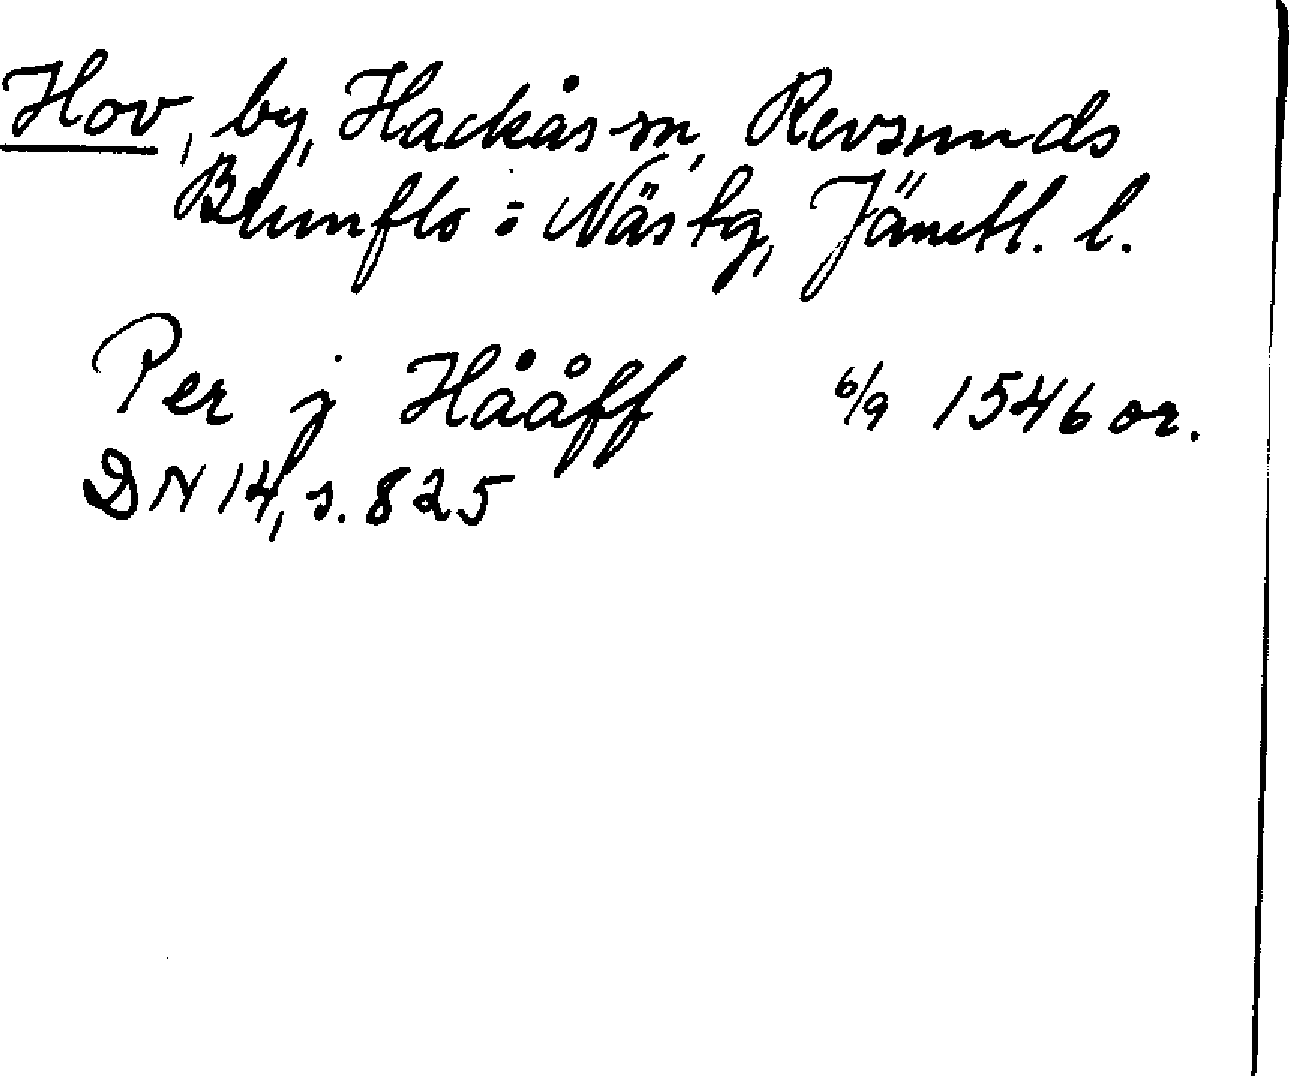 Hov, by, Hackås sn, Revsunds
Brunflo o Näs tg, Jämtl. l.
Per j Hååff 6/9 1546 or.
DN 14, s. 825